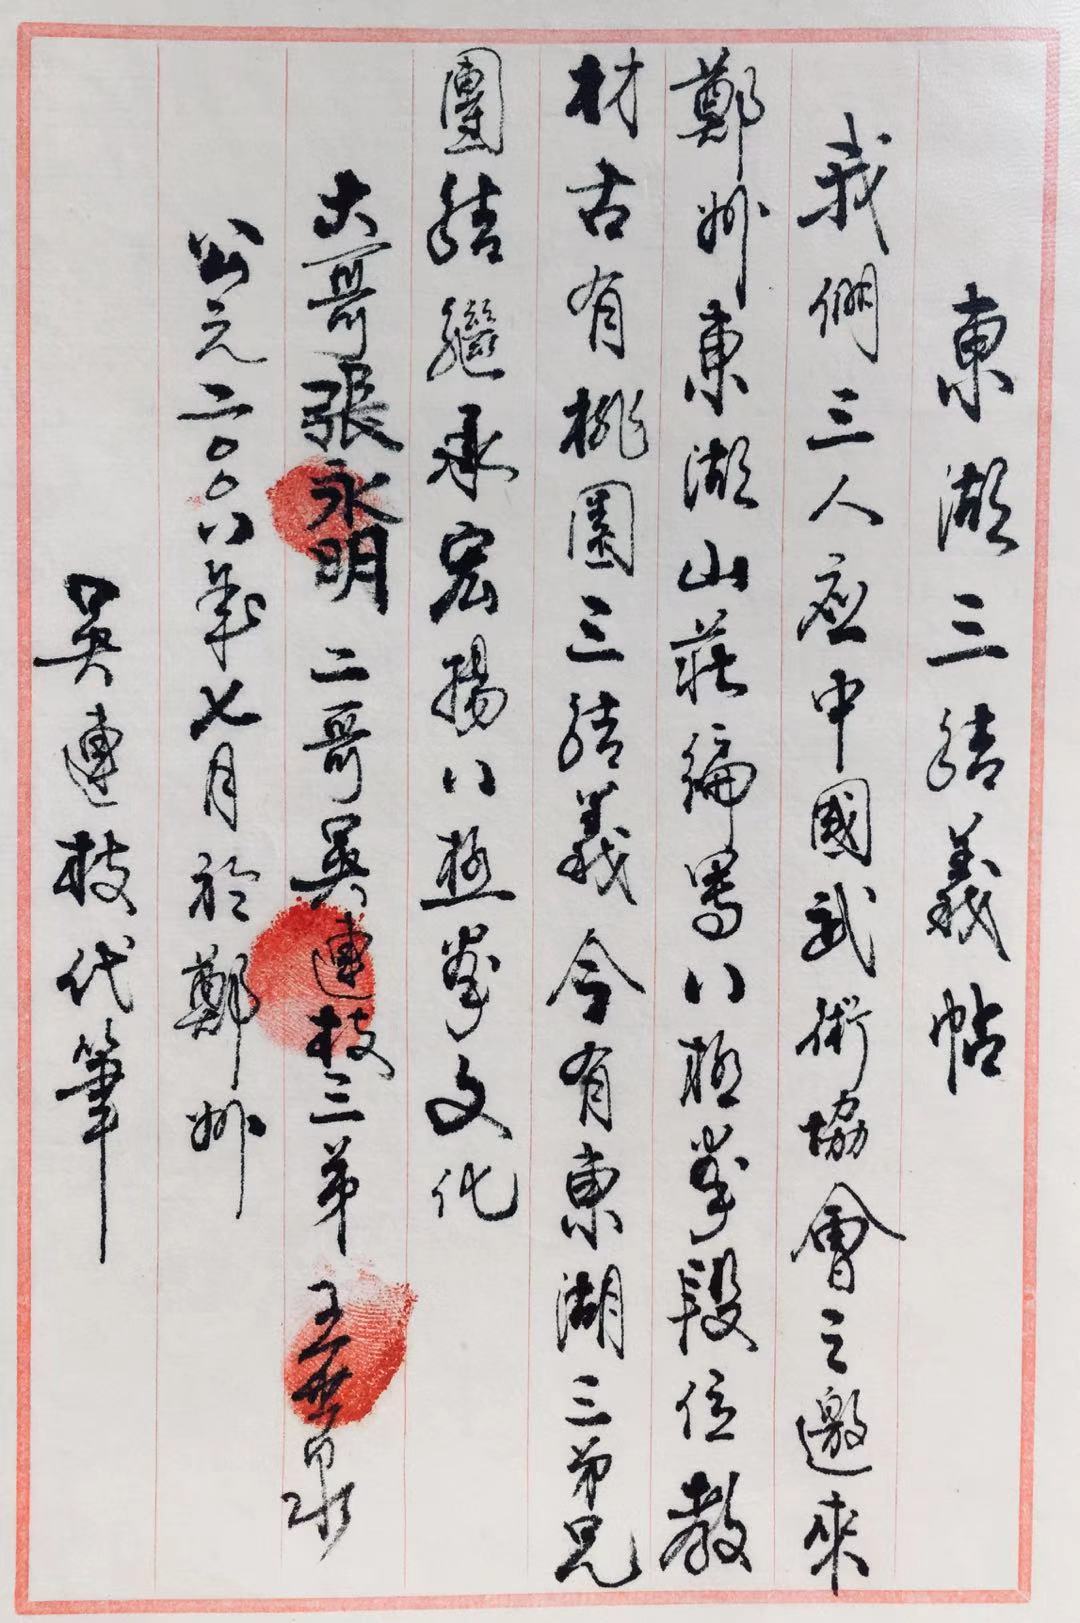 東湖三結義帖
我們三人应中國武術協會之邀來
鄭州東湖山莊編寫八極拳段位教
材古有桃園三結義今有東湖三弟兄
團結繼承宏揚八極拳文化
大哥張永明二哥吳連枝三弟王世泉
公元二〇〇八年七月於鄭州
吳連枝代筆